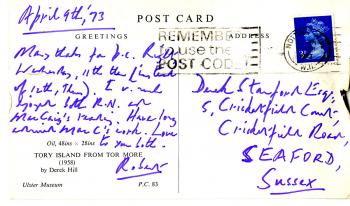 April 9th, '73
POST CARD
GREETINGS
ADDRESS
REMEMBER
to use the
POST CODE
Many thanks for p.c.
Wednesday, 11th (instead
of 12th, Thurs). I
enjoy both R.N. and
MacCaig's
Have long
admired MacC's work. Love
to you both.
Robert
Oil, 48ins × 28ins
TORY ISLAND FROM TOR MORE
(1958)
by Derek Hill
Ulster Museum
P.C. 83
Derek Stanford Esq.,
5, Cricketfield Court,
Cricketfield Road,
SEAFORD,
Sussex